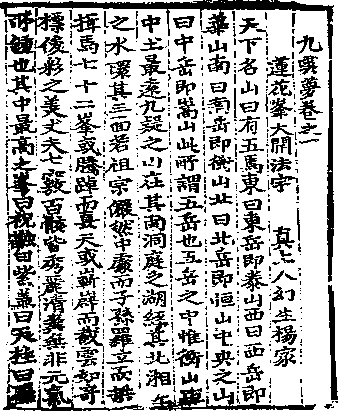 九雲夢卷之一
蓮花峯大開法宇 真上人幻生楊家
天下名山曰有五焉東曰東岳即泰山西曰西岳即
華山南曰南岳即衡山北曰北岳即恒山中央之山
曰中岳即嵩山此所謂五岳也五岳之中惟衡山距
中土最遠九疑之山在其南洞庭之湖經其北湘江
之水環其三面若祖宗儼然中處而子孫羅立而拱
揖焉七十二峯或騰踔而矗天或嶄辟而截雲如奇
標俊彩之美丈夫七竅百骸皆秀麗清爽無非元氣
所鍾也其中最高之峯曰祝融曰紫盖曰天柱曰